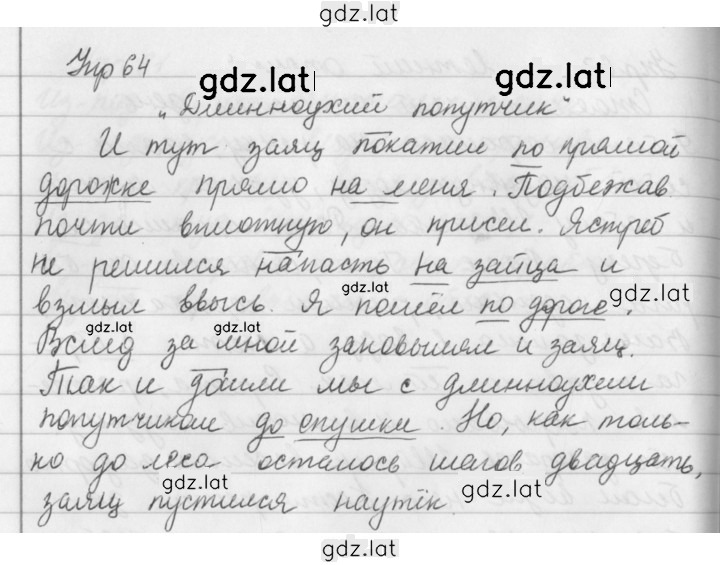 gdz.lat
Упр 64
gdz.lat gdz.lat
„Длинноухий попутчик“
И тут заяц покатил по прямой
дорожке прямо на меня. Подбежав
почти вплотную, он присел. Ястреб
не решился напасть на зайца и
gdz.lat gdz.lat
взмыл ввысь. Я пошёл по дороге.
gdz.lat gdz.lat
Вслед за мной заковылял и заяц.
Так и дошли мы с длинноухим
попутчиком до опушки. Но, как толь-
ко до леса осталось шагов двадцать,
gdz.lat gdz.lat
заяц пустился наутёк.
gdz.lat